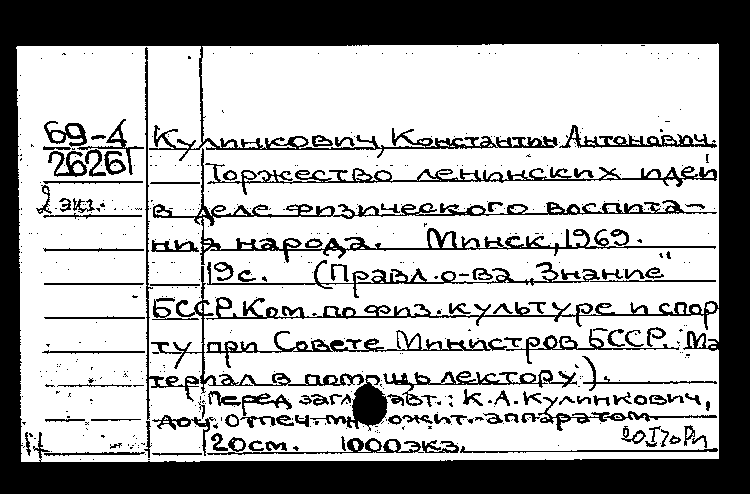 69-4 Кулинкович, Константин Антонович.
26261
Торжество ленинских идей
2 экз. в деле физического воспита-
ния народа. Минск, 1969.
19с. (Правл. о-ва „Знание"
БССР. Ком. по физ. культуре и спор
ту при Совете Министров БССР. Ма
териал в помощь лектору).
Перед загл. авт.: К.А. Кулинкович,
доц. Отпеч. множит. аппаратом.
20см. 1000экз.